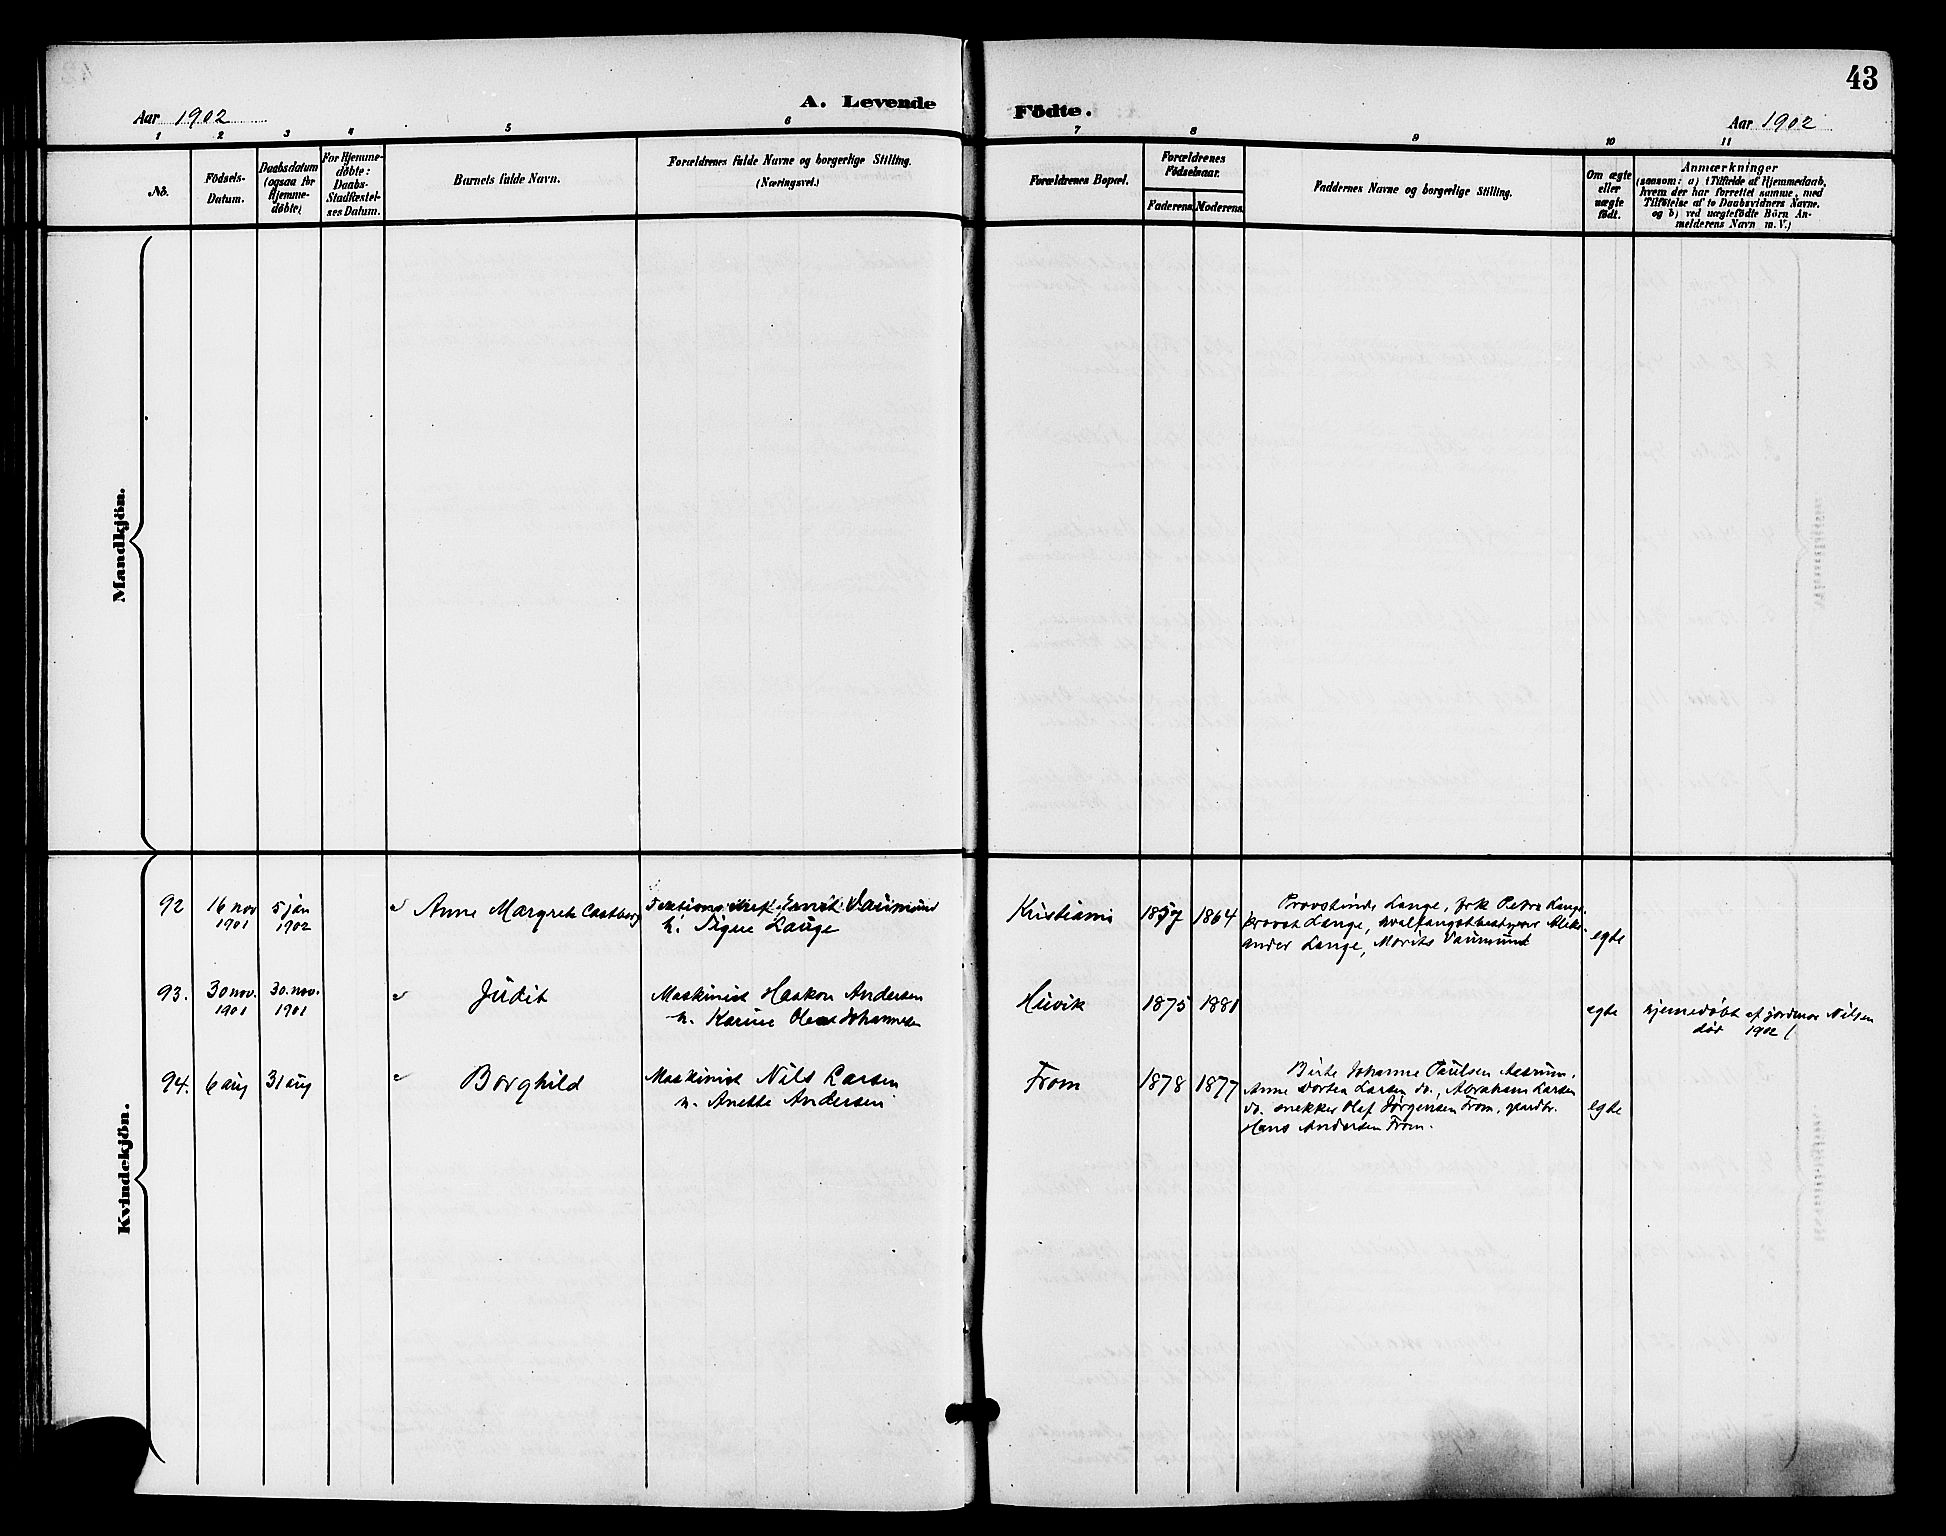 43
Aar 1902
A. Levende
Födte.
Aar 1902
1 2 3 4 5 6 7 8 9 10 11
No.
Födsels-
Datum.
Daabsdatum
(ogsaa for
Hjemme-
döbte)
For Hjemme-
döbte:
Daabs-
Stadfæstel-
ses Datum.
Barnets fulde Navn.
Forældrenes fulde Navne og borgerlige Stilling.
(Næringsvei.)
Forældrenes Bopæl.
Forældrenes
Födselsaar.
Faderens
Moderens.
Faddernes Navne og borgerlige Stilling.
Om ægte
eller
uægte
födt.
Anmærkninger
(saasom: a) i Tilfælde af Hjemmedaab,
hvem der har forrettet samme, med
Tilföielse af to Daabsvidners Navne.
og b) ved uægtefödte Börn An-
melderens Navn m. V.)
Mandkjön.
Kvindekjön.
92
16 nov
1901
5 jan
1902
Anne Margrete Castberg
Vaumund
h. Signe Lange
Kristiania
1857
1864
Provstinde Lange, frk Petra Lange,
provst Lange, hvalfangstbestyrer Alek-
ander Lange, Morits Vaumund
egte
93.
30 nov.
1901
30. nov.
1901
Judit
Maskinist Haakon Andersen
h. Karine Johannesen
Husvik
1875
1881
egte
hjemedøbt af jordmor Nilsen
død 1902
94.
6 aug
31 aug
Borghild
Maskinist Nils Larsen
h. Anette Andersen
From
1878
1877
Birte Johanne Paulsen Aasrum.
Anne Dortea Larsen do., Abraham Larsen
do. snekker Olaf Jørgensen From, gaardbr.
Hans Andersen From.
egte